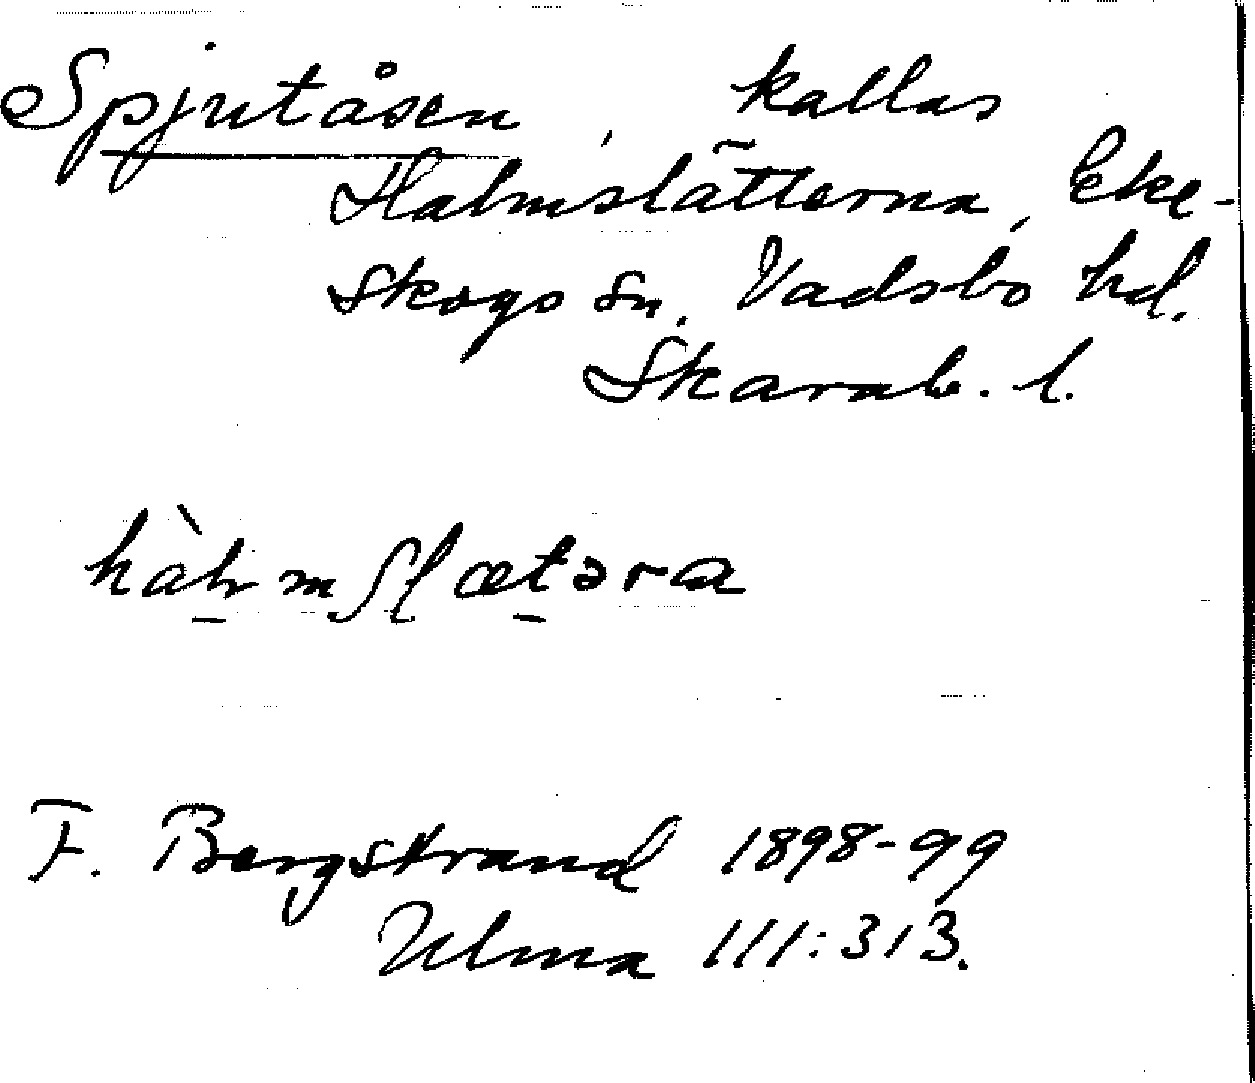 Spjutåsen, kallas
Halmslätterna, Eke-
skogs sn. Vadsbo hd.
Skarab. l.
F. Bergstrand 1898-99
Ulma 111:313.